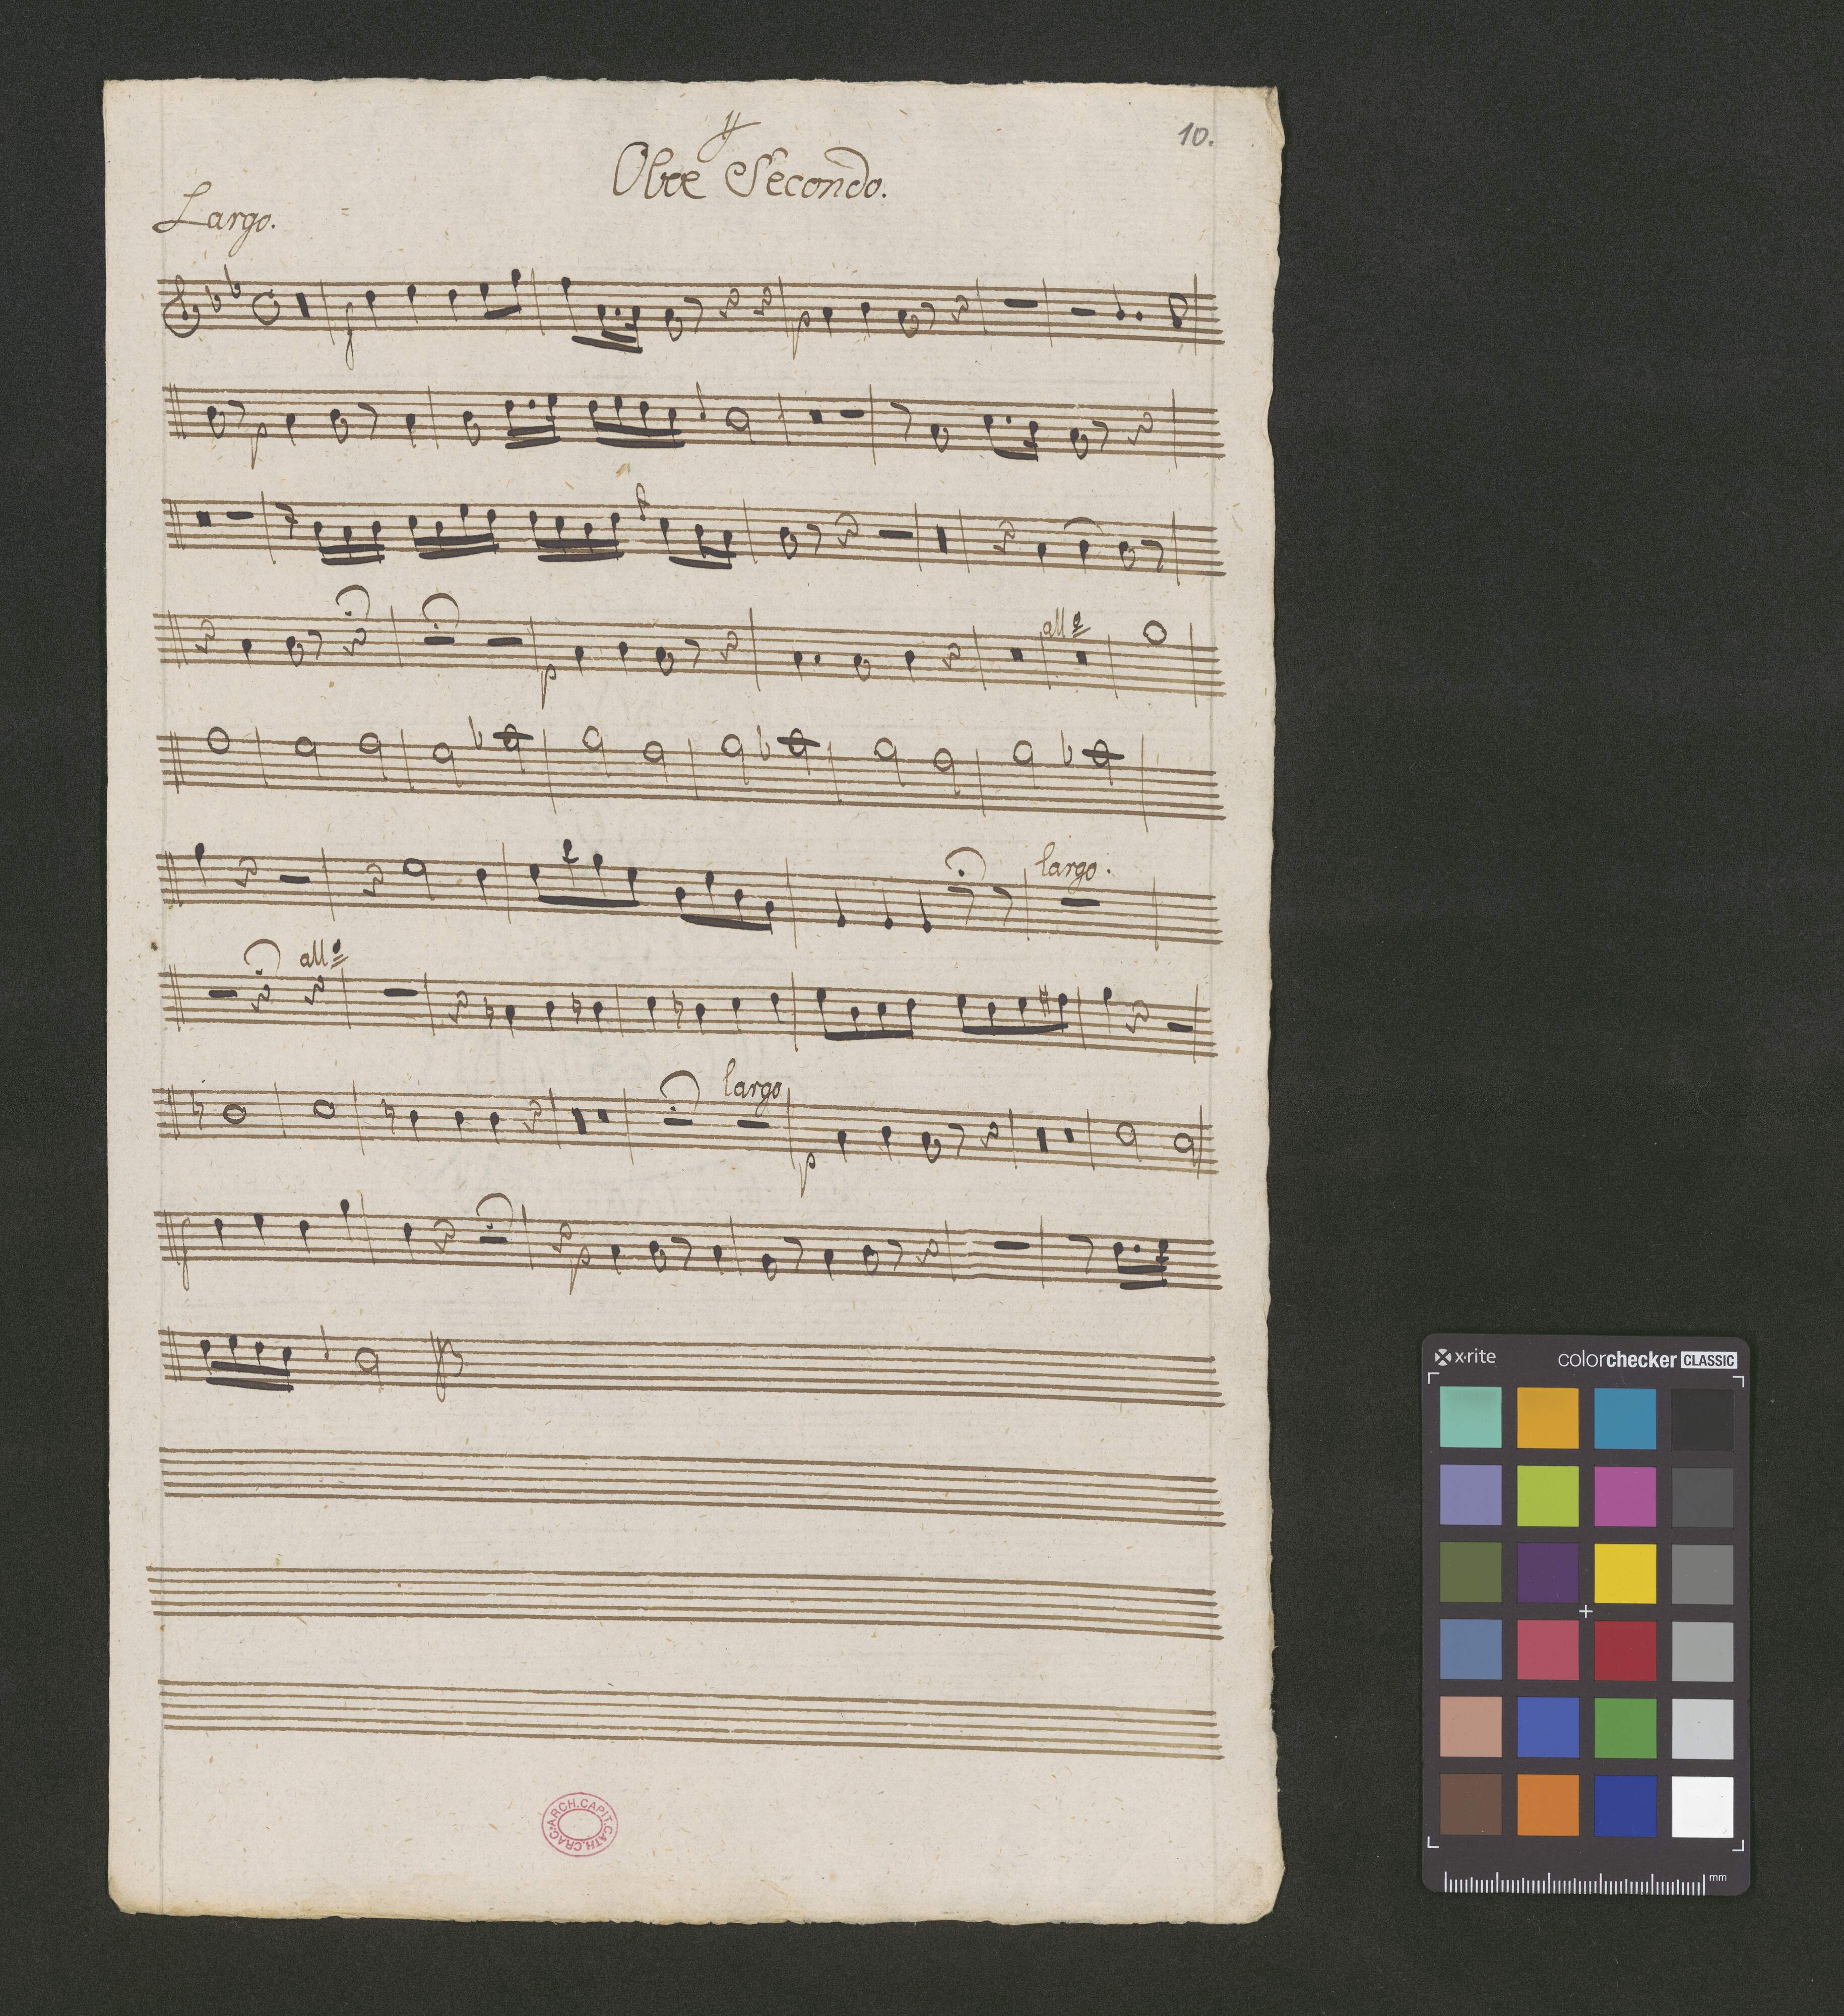 10.
Oboe Secondo.
Largo.
p
p
allo
p
largo.
allo
largo
p
p
ARCH.CAPIT.CATH.CRAC.
x-rite
colorchecker CLASSIC
mm